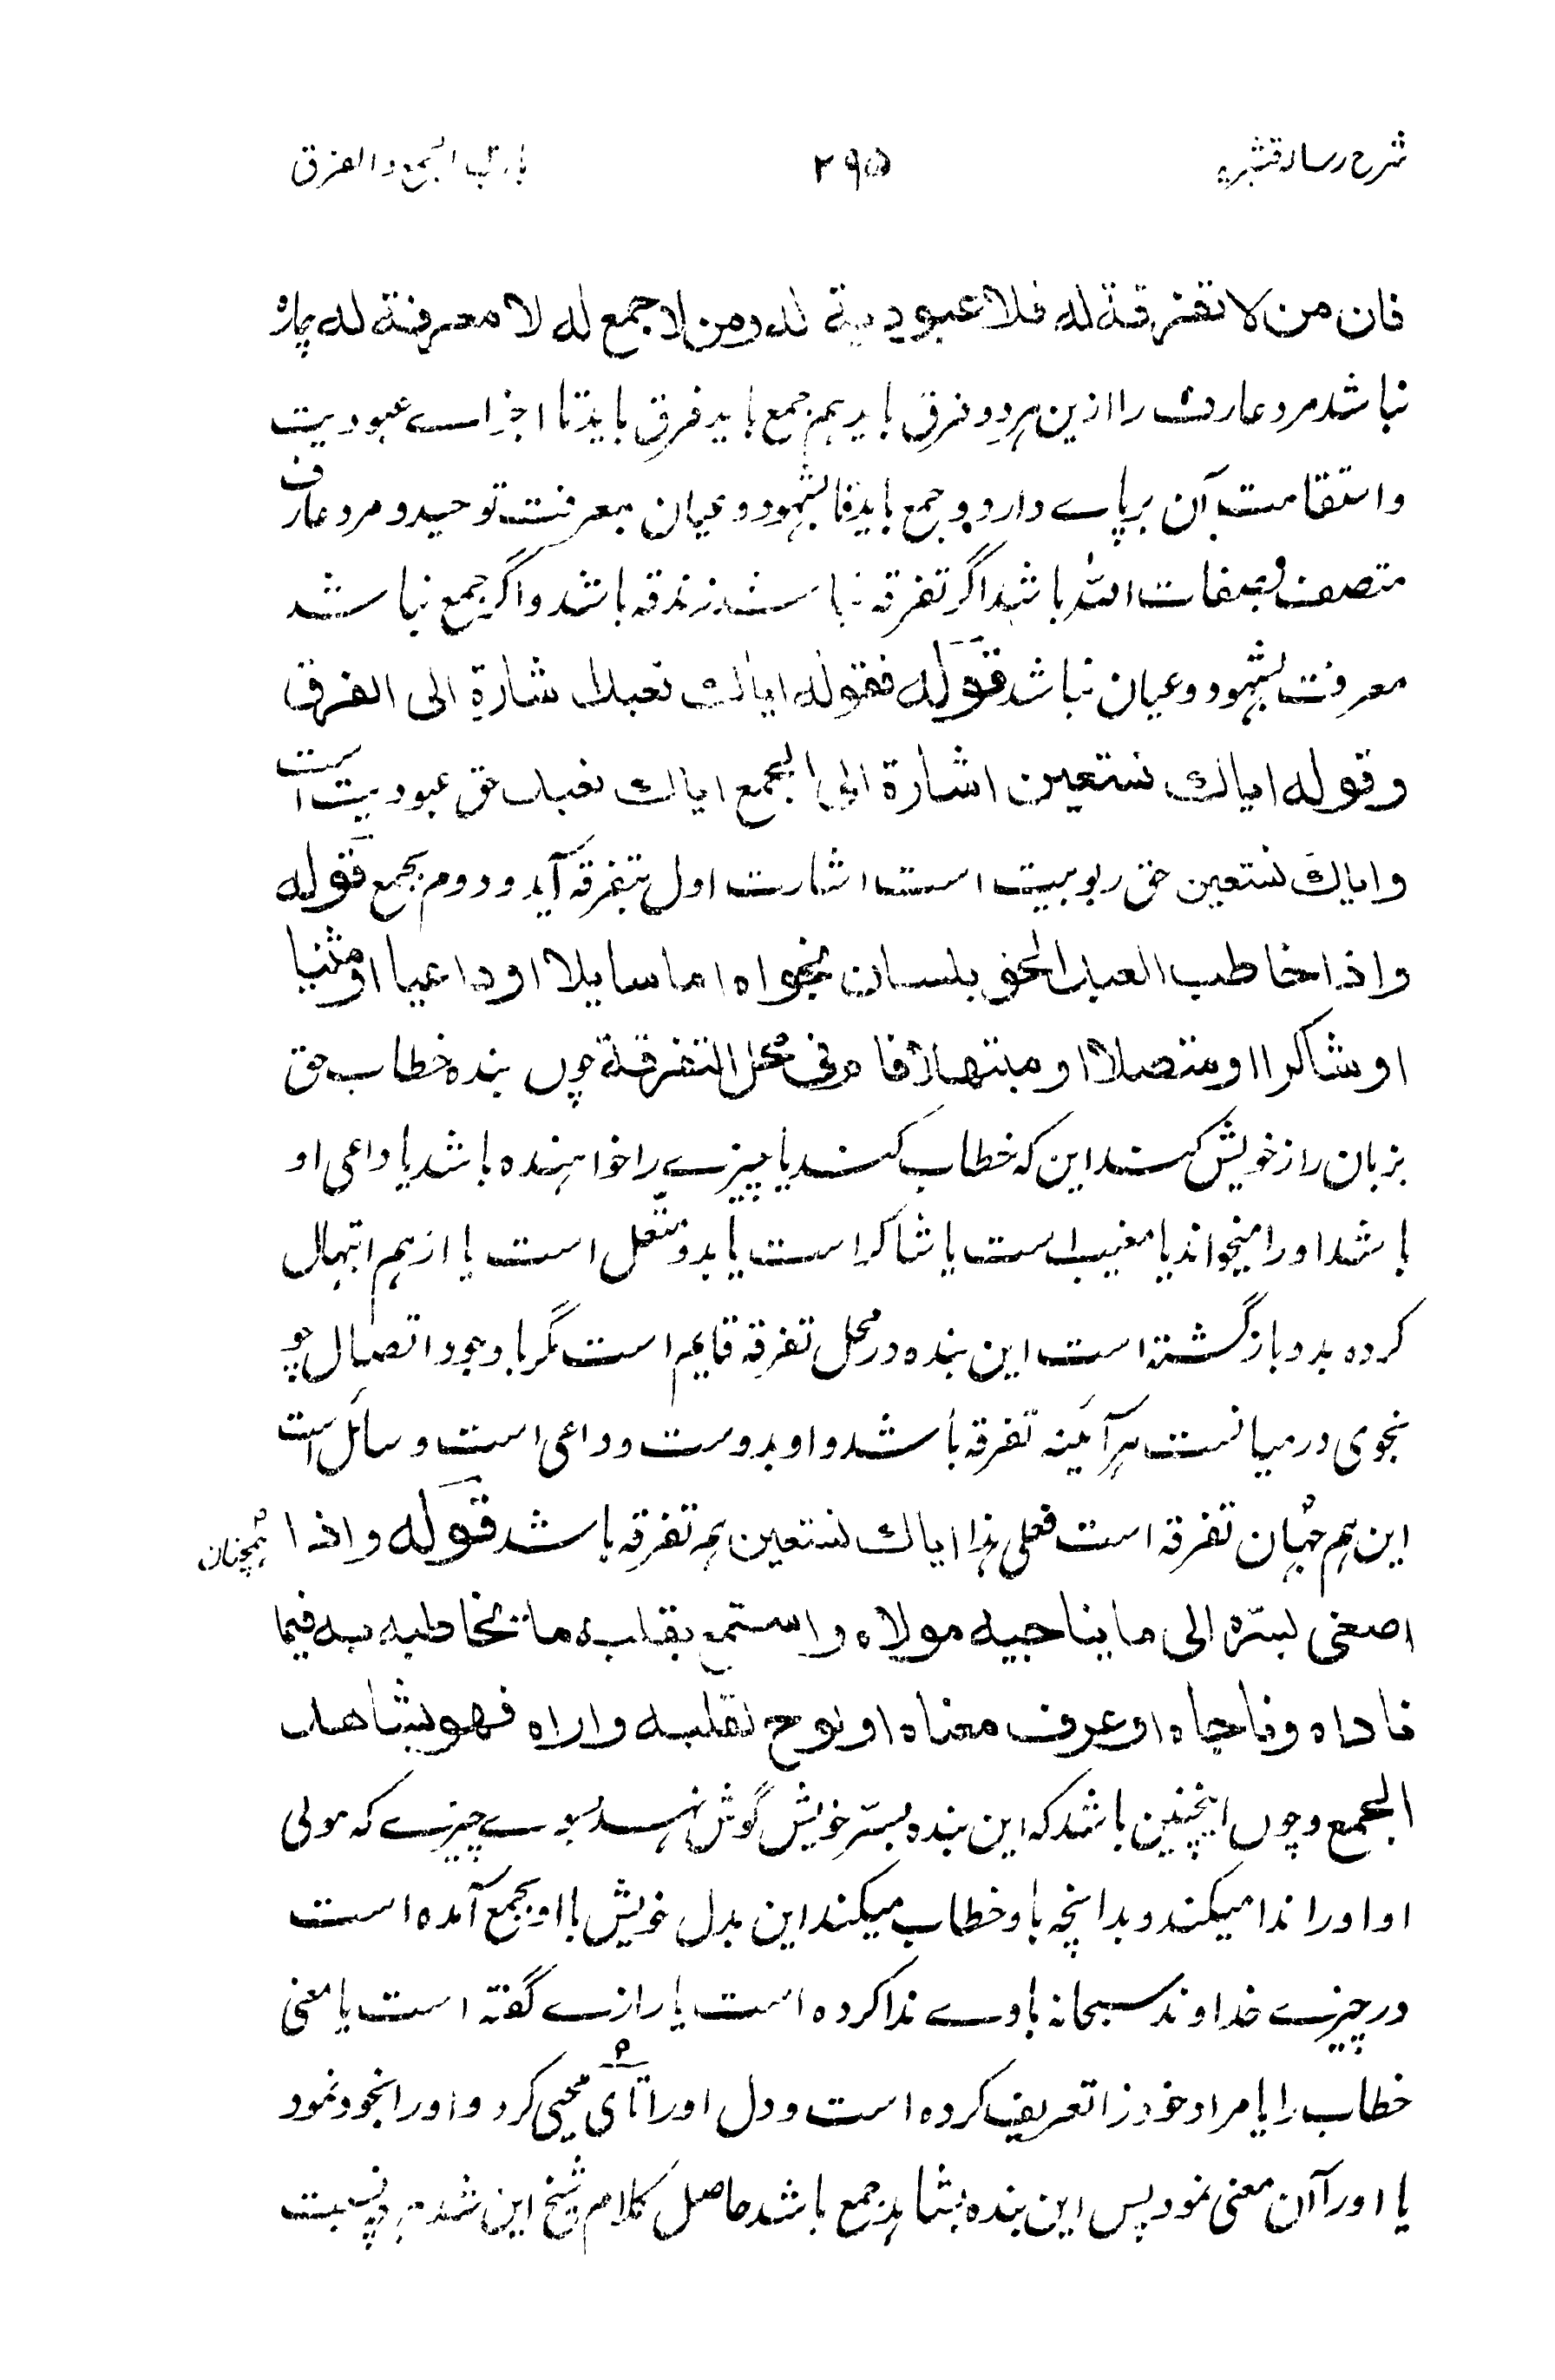 شرح رساله قشیریه ۲۹۵ باب الجمع والفرق
فان من لا تفرقة له فلا عبودیة له ومن لا جمع له لا معرفة له چاره
نباشد مرد عارف را ازین هر دو فرق باید هم جمع باید فرق باید تا اجزاے عبودیت
واستقامت آن برپاے دارد و جمع باید تا بشهود و عیان معرفت توحید و مرد عارف
متصف بصفات الله باشد اگر تفرقه نباشد زندقه باشد و اگر جمع نباشد
معرفت بشهود و عیان نباشد قوله فقوله ایاك نعبد اشارة الی الفرق
وقوله ایاك نستعین اشارة الی الجمع ایاك نعبد حق عبودیت است
وایاك نستعین حق ربوبیت است اشارت اول بتفرقه آید و دوم بجمع قوله
واذا خاطب العبد الحق بلسان نجواه اما سایلا او داعیا او مثنیا
او شاکرا او متصلا او مبتهلا فاهو فی محل التفرقة چوں بنده خطاب حق
بزبان راز خویش کند این که خطاب کند یا چیزے را خواهنده باشد یا داعی او
باشد او را میخواند یا مغیب است یا شاکر است یا بدو متصل است یا از هم ابتهال
کرده بدو بازگشته است این بنده در محل تفرقه قایم است مگر باوجود اتصال چو
نجوی درمیانست هر آئینه تفرقه باشد و او بدوست و داعی است و سائل است
این هم جهان تفرقه است فعلی هذا ایاك نستعین همه تفرقه باشد قوله واذا
همچنان
اصغی بسرّه الی ما یناجیه مولاه واستمع بقلبه ما تخاطبه به فیما
ناداه وناجاه او عرف معناه او لوح لقلبه واراه فهو بشاهد
الجمع و چوں اینچنین باشد که این بنده بسرّ خویش گوش نهد بسوے چیزے که مولی
او اورا ندا میکند و بدانچه باو خطاب میکند این بدل خویش با او بجمع آمده است
در چیزے خداوند سبحانه باوے ندا کرده است یا رازے گفته است یا معنی
خطاب را یا مراد خود را تعریف کرده است و دل اورا تائی محیی کرد و اورا بخود نمود
یا اورا آن معنی نمود پس این بنده بشاهد جمع باشد حاصل کلام شیخ این شد هرچه نسبت